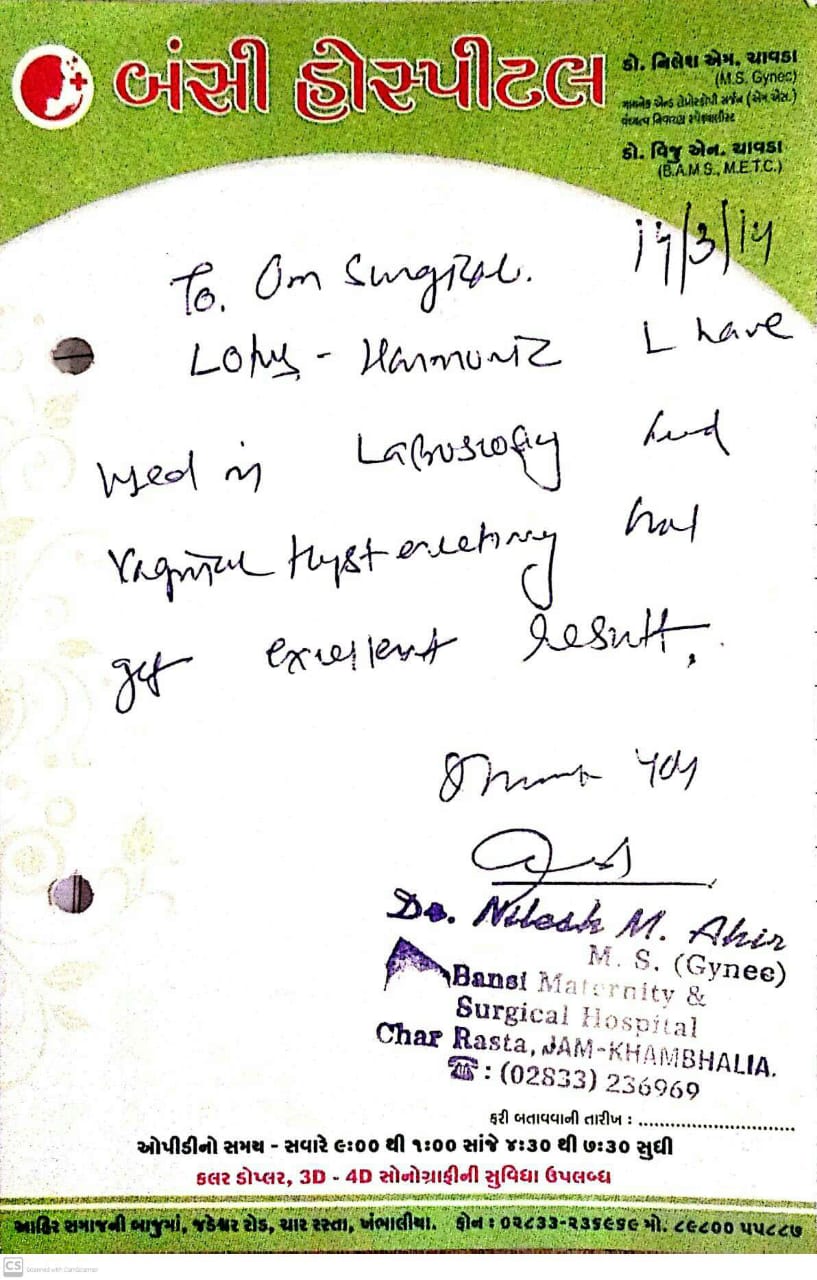 બંસી હોસ્પીટલ
ડો. નિલેશ એમ. ચાવડા
(M.S. Gynec)
ગાયનેક એન્ડ લેપ્રોસ્કોપી સર્જન (એમ.એસ.)
વંધ્યત્વ નિવારણ સ્પેશ્યાલીસ્ટ
ડો. વિજુ એન. ચાવડા
(B.A.M.S., M.E.T.C.)
To. Om Surgical.
Lotus - Harmonic I have
used in Laproscopy and
Vaginal Hysterectomy and
get excellent result.
Thank you
Dr. Nilesh M. Ahir
M. S. (Gynec)
Bansi Maternity &
Surgical Hospital
Char Rasta, JAM-KHAMBHALIA.
☎ : (02833) 236969
ફરી બતાવવાની તારીખ : ..............................
ઓપીડીનો સમય - સવારે ૯:૦૦ થી ૧:૦૦ સાંજે ૪:૩૦ થી ૭:૩૦ સુધી
કલર ડોપ્લર, 3D - 4D સોનોગ્રાફીની સુવિધા ઉપલબ્ધ
આહિર સમાજની બાજુમાં, જડેશ્વર રોડ, ચાર રસ્તા, ખંભાલીયા. ફોન : ૦૨૮૩૩-૨૩૬૯૬૯ મો. ૮૯૮૦૦ ૫૫૮૮૭
CS Scanned with CamScanner